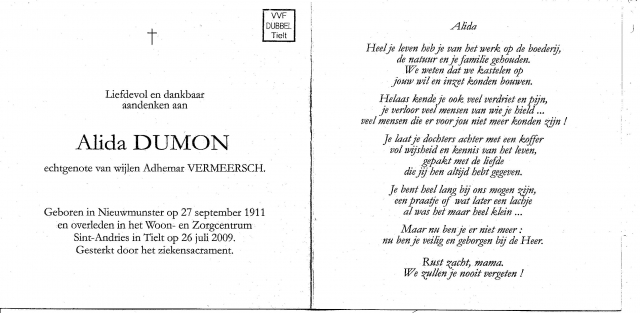 VVF
DUBBEL
Tielt
Liefdevol en dankbaar
aandenken aan
Alida DUMON
echtgenote van wijlen Adhemar VERMEERSCH.
Geboren in Nieuwmunster op 27 september 1911
en overleden in het Woon- en Zorgcentrum
Sint-Andries in Tielt op 26 juli 2009.
Gesterkt door het ziekensacrament.
Alida
Heel je leven heb je van het werk op de boederij,
de natuur en je familie gehouden.
We weten dat we kastelen op
jouw wil en inzet konden bouwen.
Helaas kende je ook veel verdriet en pijn,
je verloor veel mensen van wie je hield ...
veel mensen die er voor jou niet meer konden zijn !
Je laat je dochters achter met een koffer
vol wijsheid en kennis van het leven,
gepakt met de liefde
die jij hen altijd hebt gegeven.
Je bent heel lang bij ons mogen zijn,
een praatje of wat later een lachje
al was het maar heel klein ...
Maar nu ben je er niet meer :
nu ben je veilig en geborgen bij de Heer.
Rust zacht, mama.
We zullen je nooit vergeten !